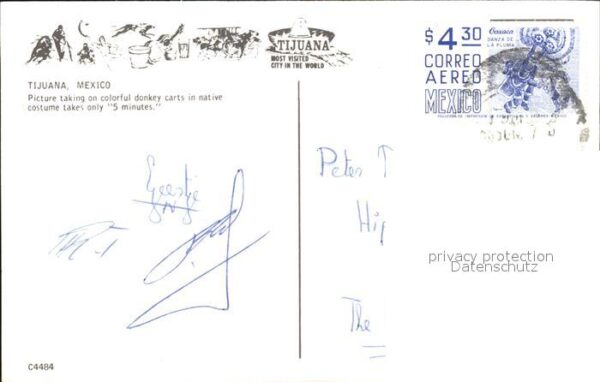 TIJUANA
MOST VISITED
CITY IN THE WORLD
TIJUANA, MEXICO
Picture taking on colorful donkey carts in native
costume takes only "5 minutes."
$4.30
CORREO
AEREO
MEXICO
Oaxaca
DANZA DE
LA PLUMA
Peter T
Hi
The
privacy protection
Datenschutz
C4484